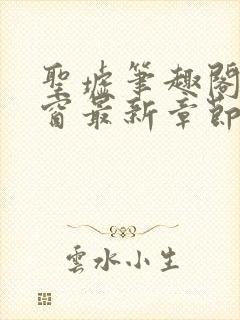 聖墟筆趣閣
窗最新章節
雲水小生